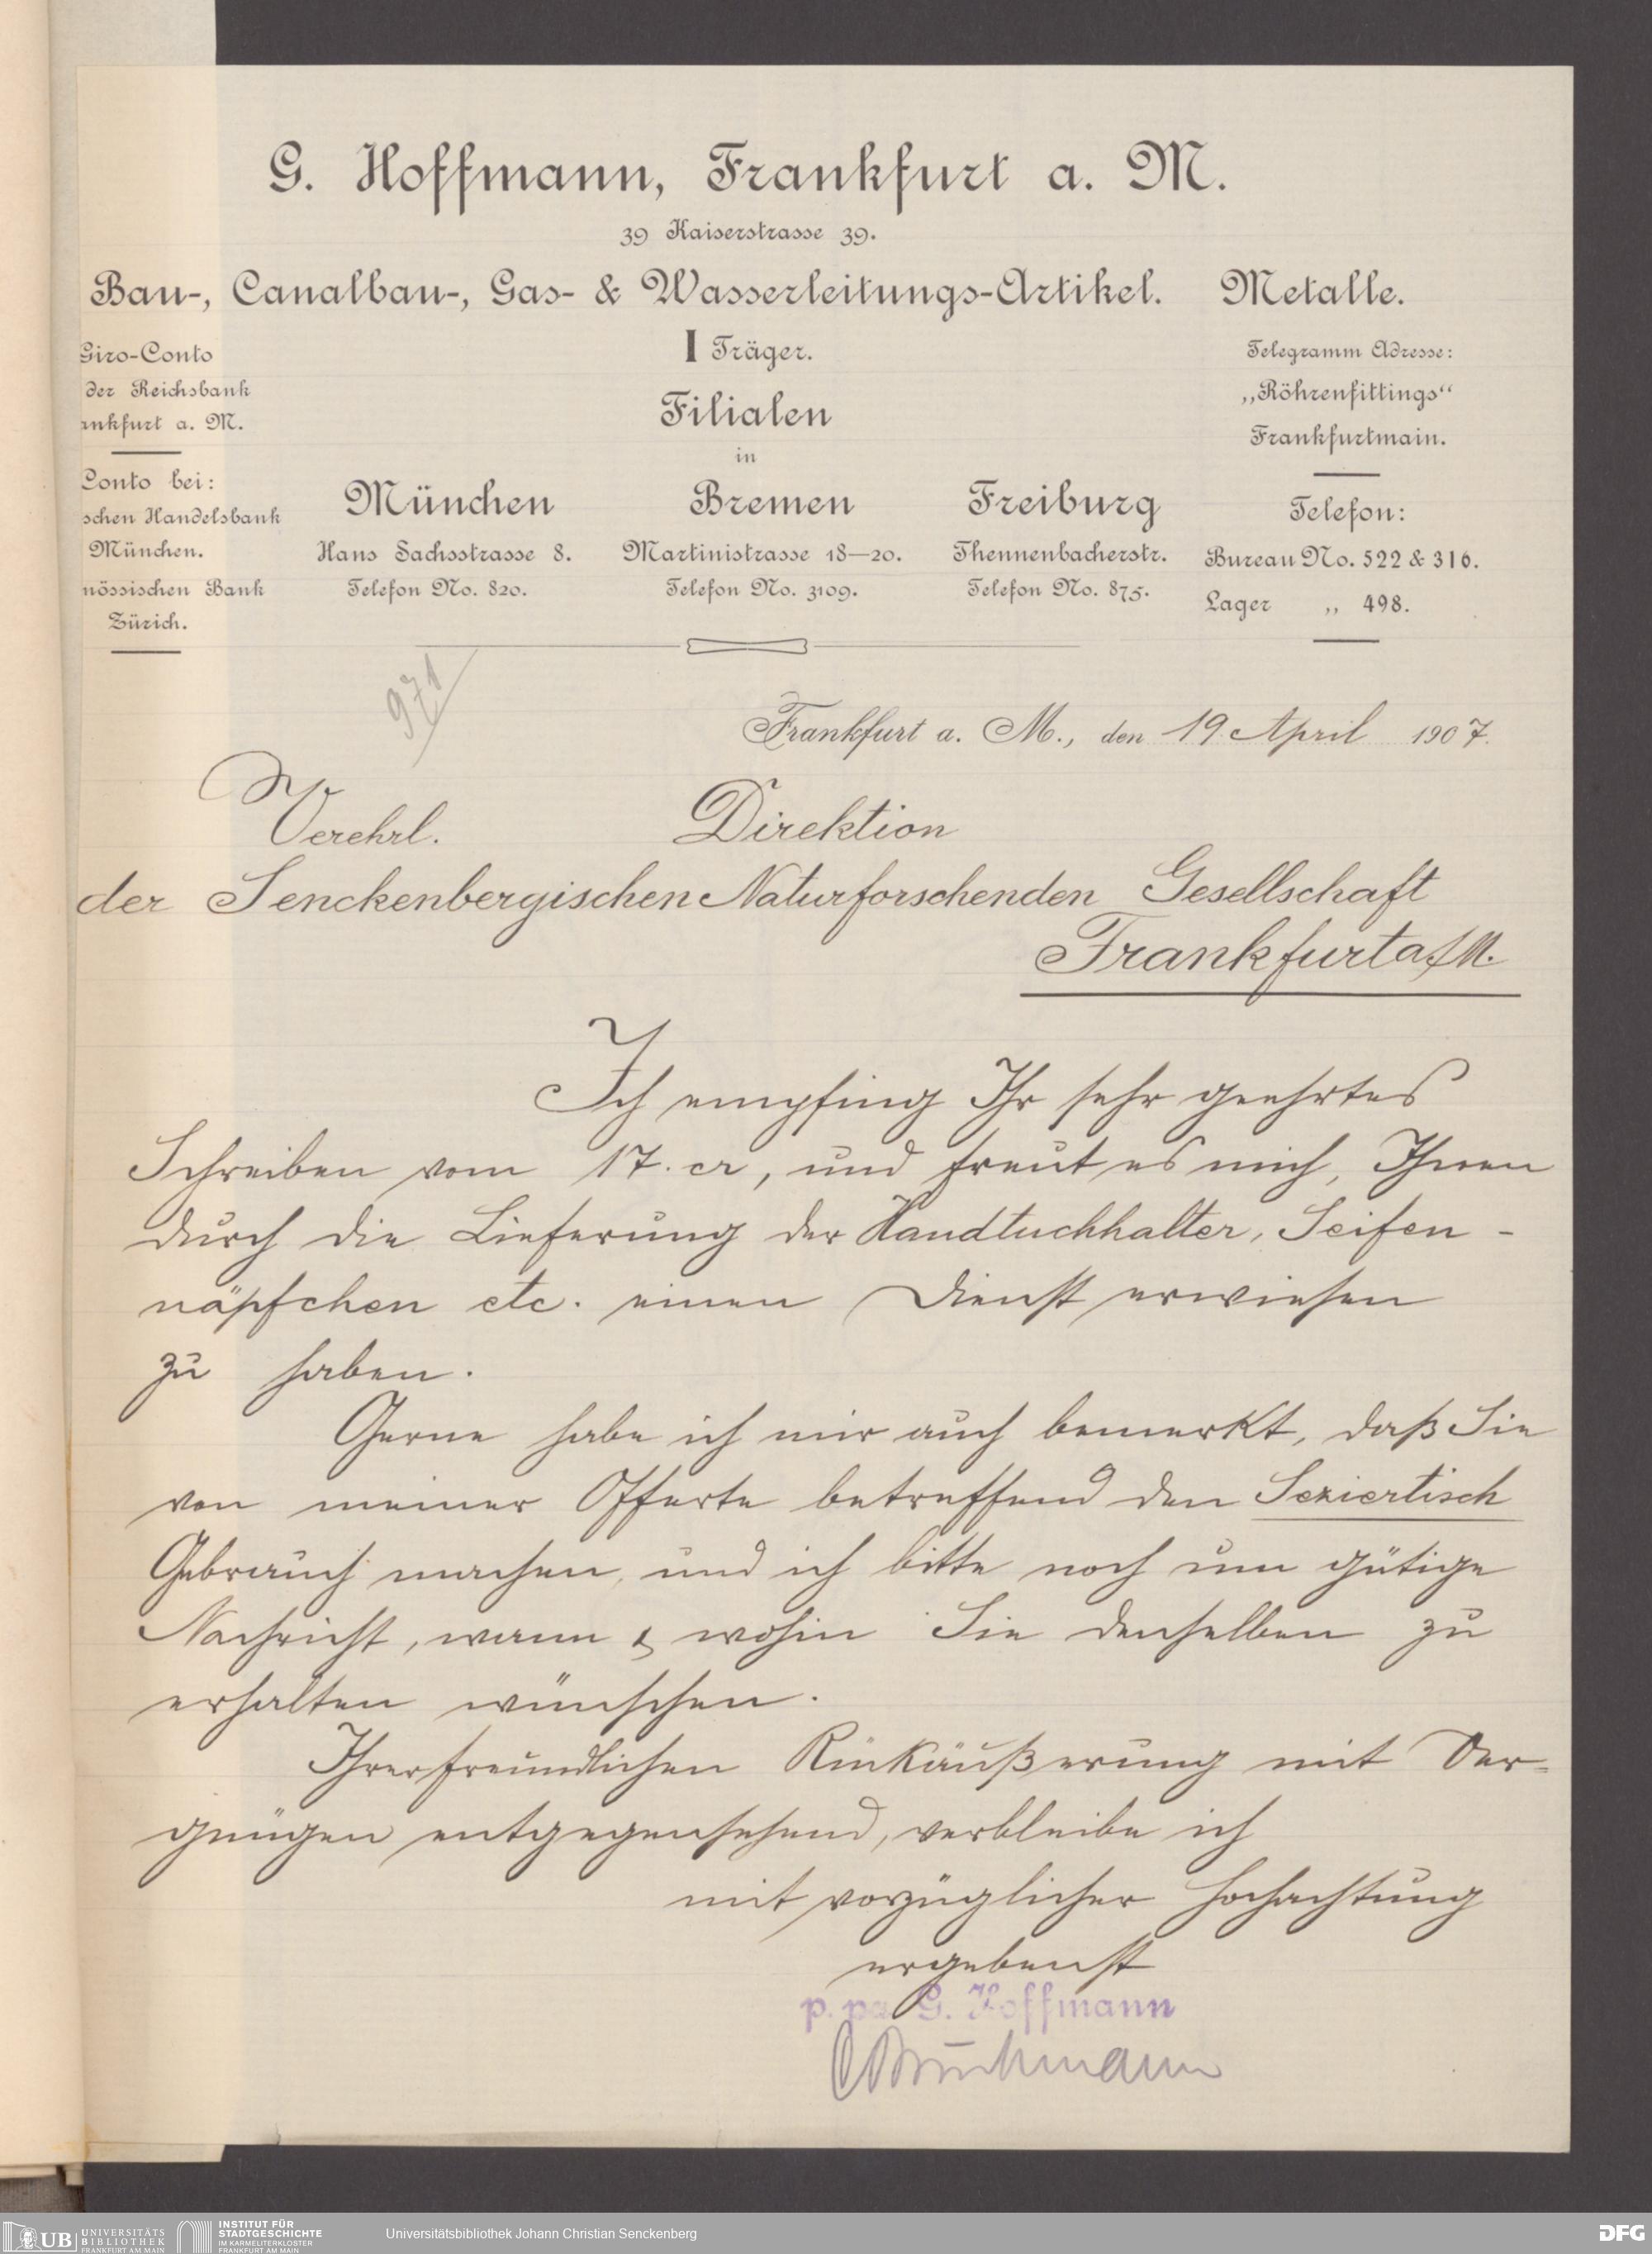 G. Hoffmann, Frankfurt a. M.
39 Kaiserstrasse 39.
Bau-, Canalbau-, Gas- & Wasserleitungs-Artikel. Metalle.
I Träger.
Giro-Conto
der Reichsbank
ankfurt a. M.
Conto bei:
schen Handelsbank
München.
nössischen Bank
Zürich.
Filialen
in
München
Hans Sachsstrasse 8.
Telefon No. 820.
Bremen
Martinistrasse 18—20.
Telefon No. 3109.
Freiburg
Thennenbacherstr.
Telefon No. 875.
Telegramm Adresse:
„Röhrenfittings“
Frankfurtmain.
Telefon:
Bureau No. 522 & 316.
Lager „ 498.
971
Frankfurt a. M., den 19. April 1907.
Verehrl. Direktion
der Senckenbergischen Naturforschenden Gesellschaft
Frankfurt a/M.
Ich empfing Ihr sehr geehrtes
Schreiben vom 17. cr, und freut es mich, Ihnen
durch die Lieferung der Handtuchhalter, Seifen-
näpfchen etc. einen Dienst erwiesen
zu haben.
Gerne habe ich mir auch bemerkt, daß Sie
von meiner Offerte betreffend den Seziertisch
Gebrauch machen, und ich bitte noch um gütige
Nachricht, wann & wohin Sie denselben zu
erhalten wünschen.
Ihrer freundlichen Rückäußerung mit Ver-
gnügen entgegensehend, verbleibe ich
mit vorzüglicher Hochachtung
ergebenst
p. pa G. Hoffmann
UB UNIVERSITÄTS
BIBLIOTHEK
FRANKFURT AM MAIN
INSTITUT FÜR
STADTGESCHICHTE
IM KARMELITERKLOSTER
FRANKFURT AM MAIN
Universitätsbibliothek Johann Christian Senckenberg
DFG